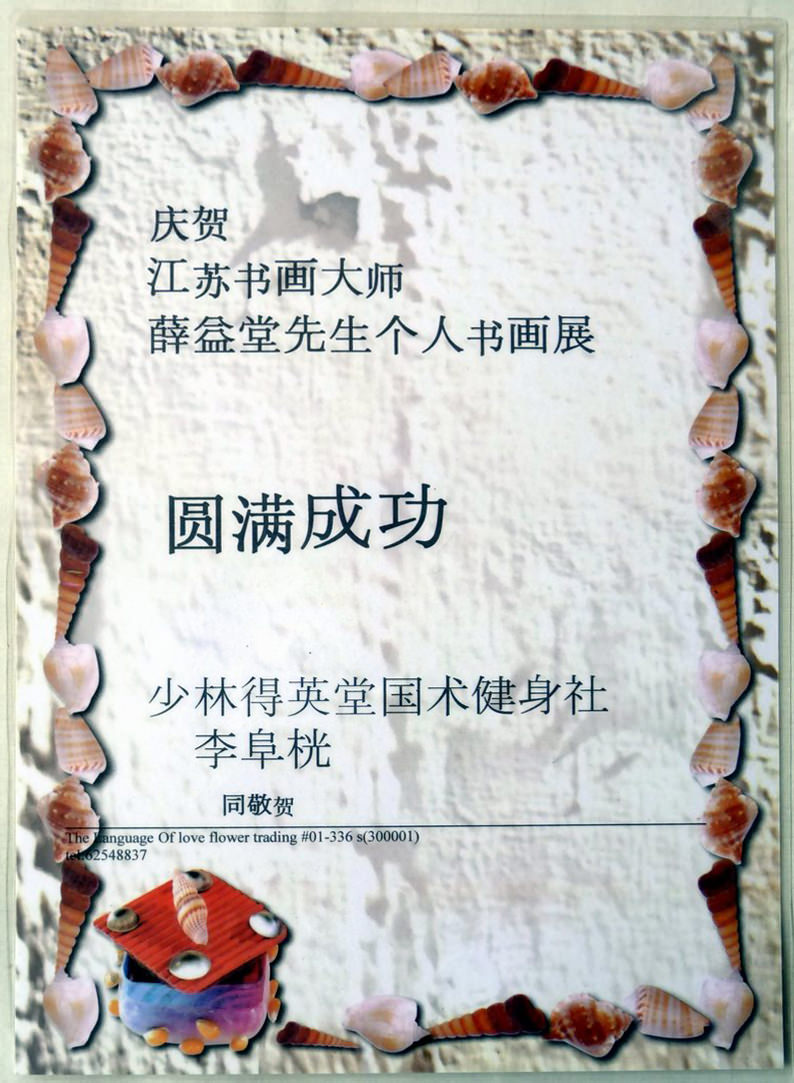 庆贺
江苏书画大师
薛益堂先生个人书画展
圆满成功
少林得英堂国术健身社
李阜桄
同敬贺
The Language Of love flower trading #01-336 s(300001)
tel:62548837